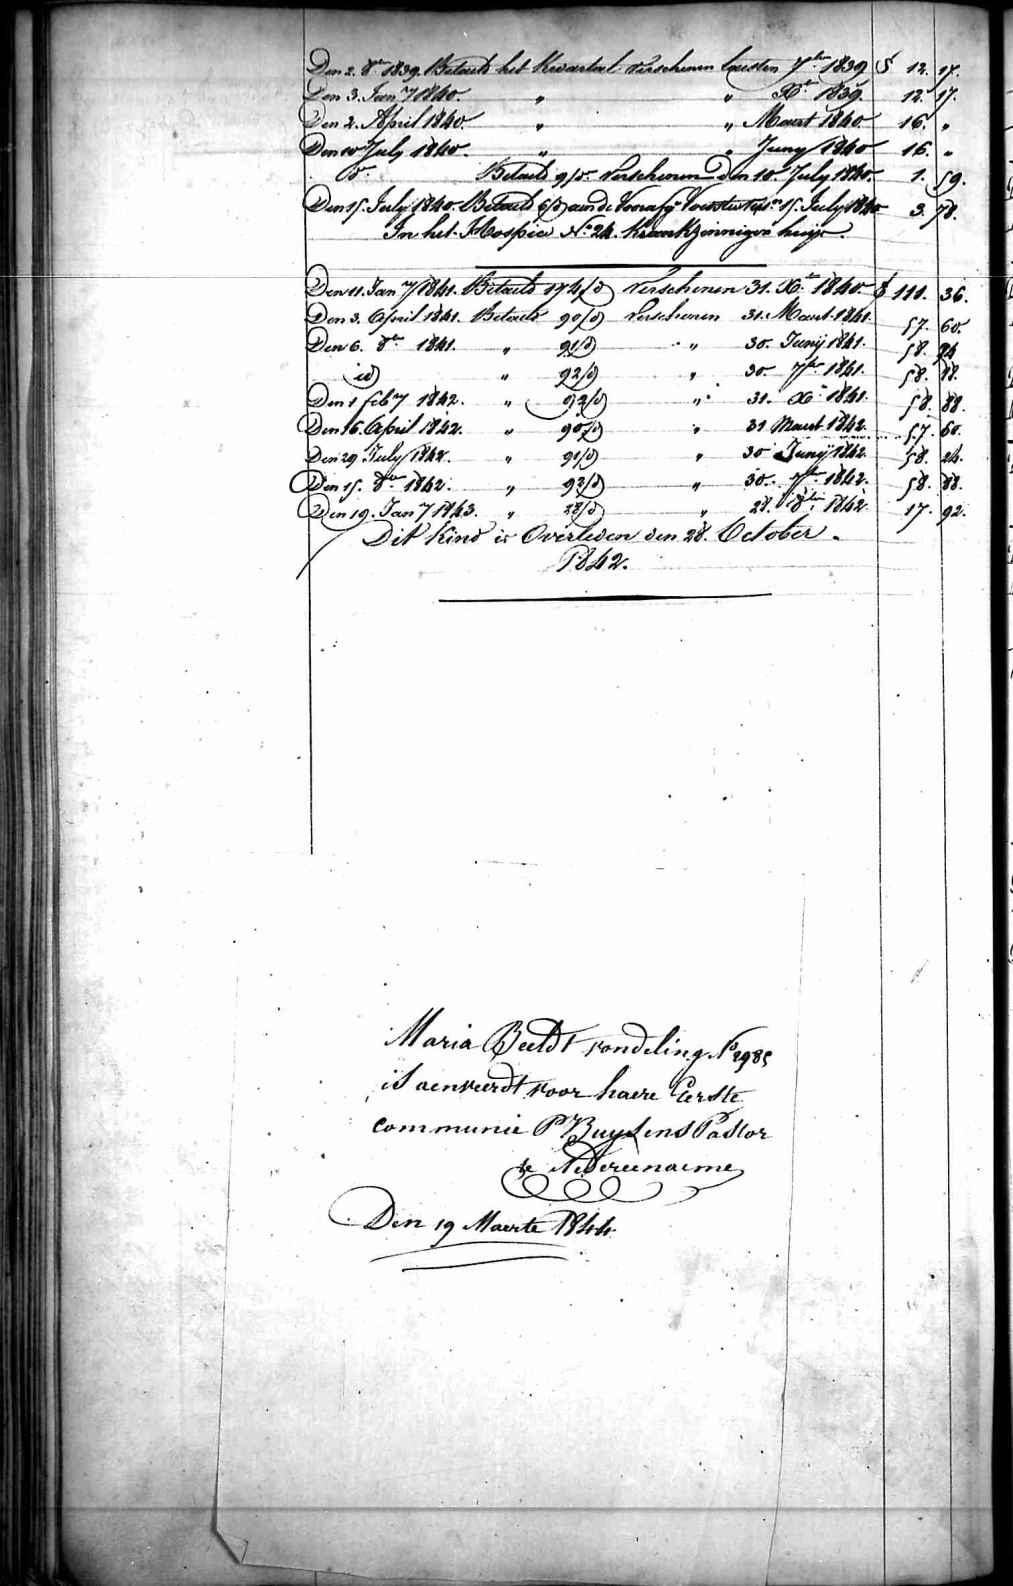 Den 2. 8er 1839. Betaeld het Kwartael Verschenen Laesten 7ber 1839 $ 12. 17.
Den 3. Jany 1840. " " Xr 1839. 12. 17.
Den 2. April 1840. " " Maert 1840. 16. "
Den 10 July 1840. " " Juny 1840 16. "
Do. Betaeld 9/d Verschenen Den 10 July 1840. 1. 59.
Den 15. July 1840. Betaeld 6/d aende 15. July 1840 3. 78.
In het Hospice No. 24. Krankzinnigen huys.
Den 11. Jany 1841. Betaeld 174/d Verschenen 31. Xr 1840 $ 111. 36.
Den 3. April 1841. Betaeld 90/d Verschenen 31. Maert 1841. 57. 60.
Den 6. 8er 1841. " 91/d " 30. Junij 1841. 58. 24
id " 92/d " 30 7er 1841. 58. 88.
Den 1 feby 1842. " 92/d " 31. Xr 1841. 58. 88.
Den 16. April 1842. " 90/d " 31 Maert 1842. 57. 60.
Den 29 July 1842. " 91/d " 30 Junij 1842. 58. 24.
Den 15. 8er 1842. " 92/d " 30. 7er 1842. 58. 88.
Den 19. Jany 1843. " 28/d " 28. 8ber 1842. 17. 92.
Dit Kind is Overleden den 28. October
1842.
Maria Beeldt vondeling No 2985
is aenveerdt voor haere Eerste
communie P Buysens Pastor
te Nedereenaeme
Den 19 Maerte 1844